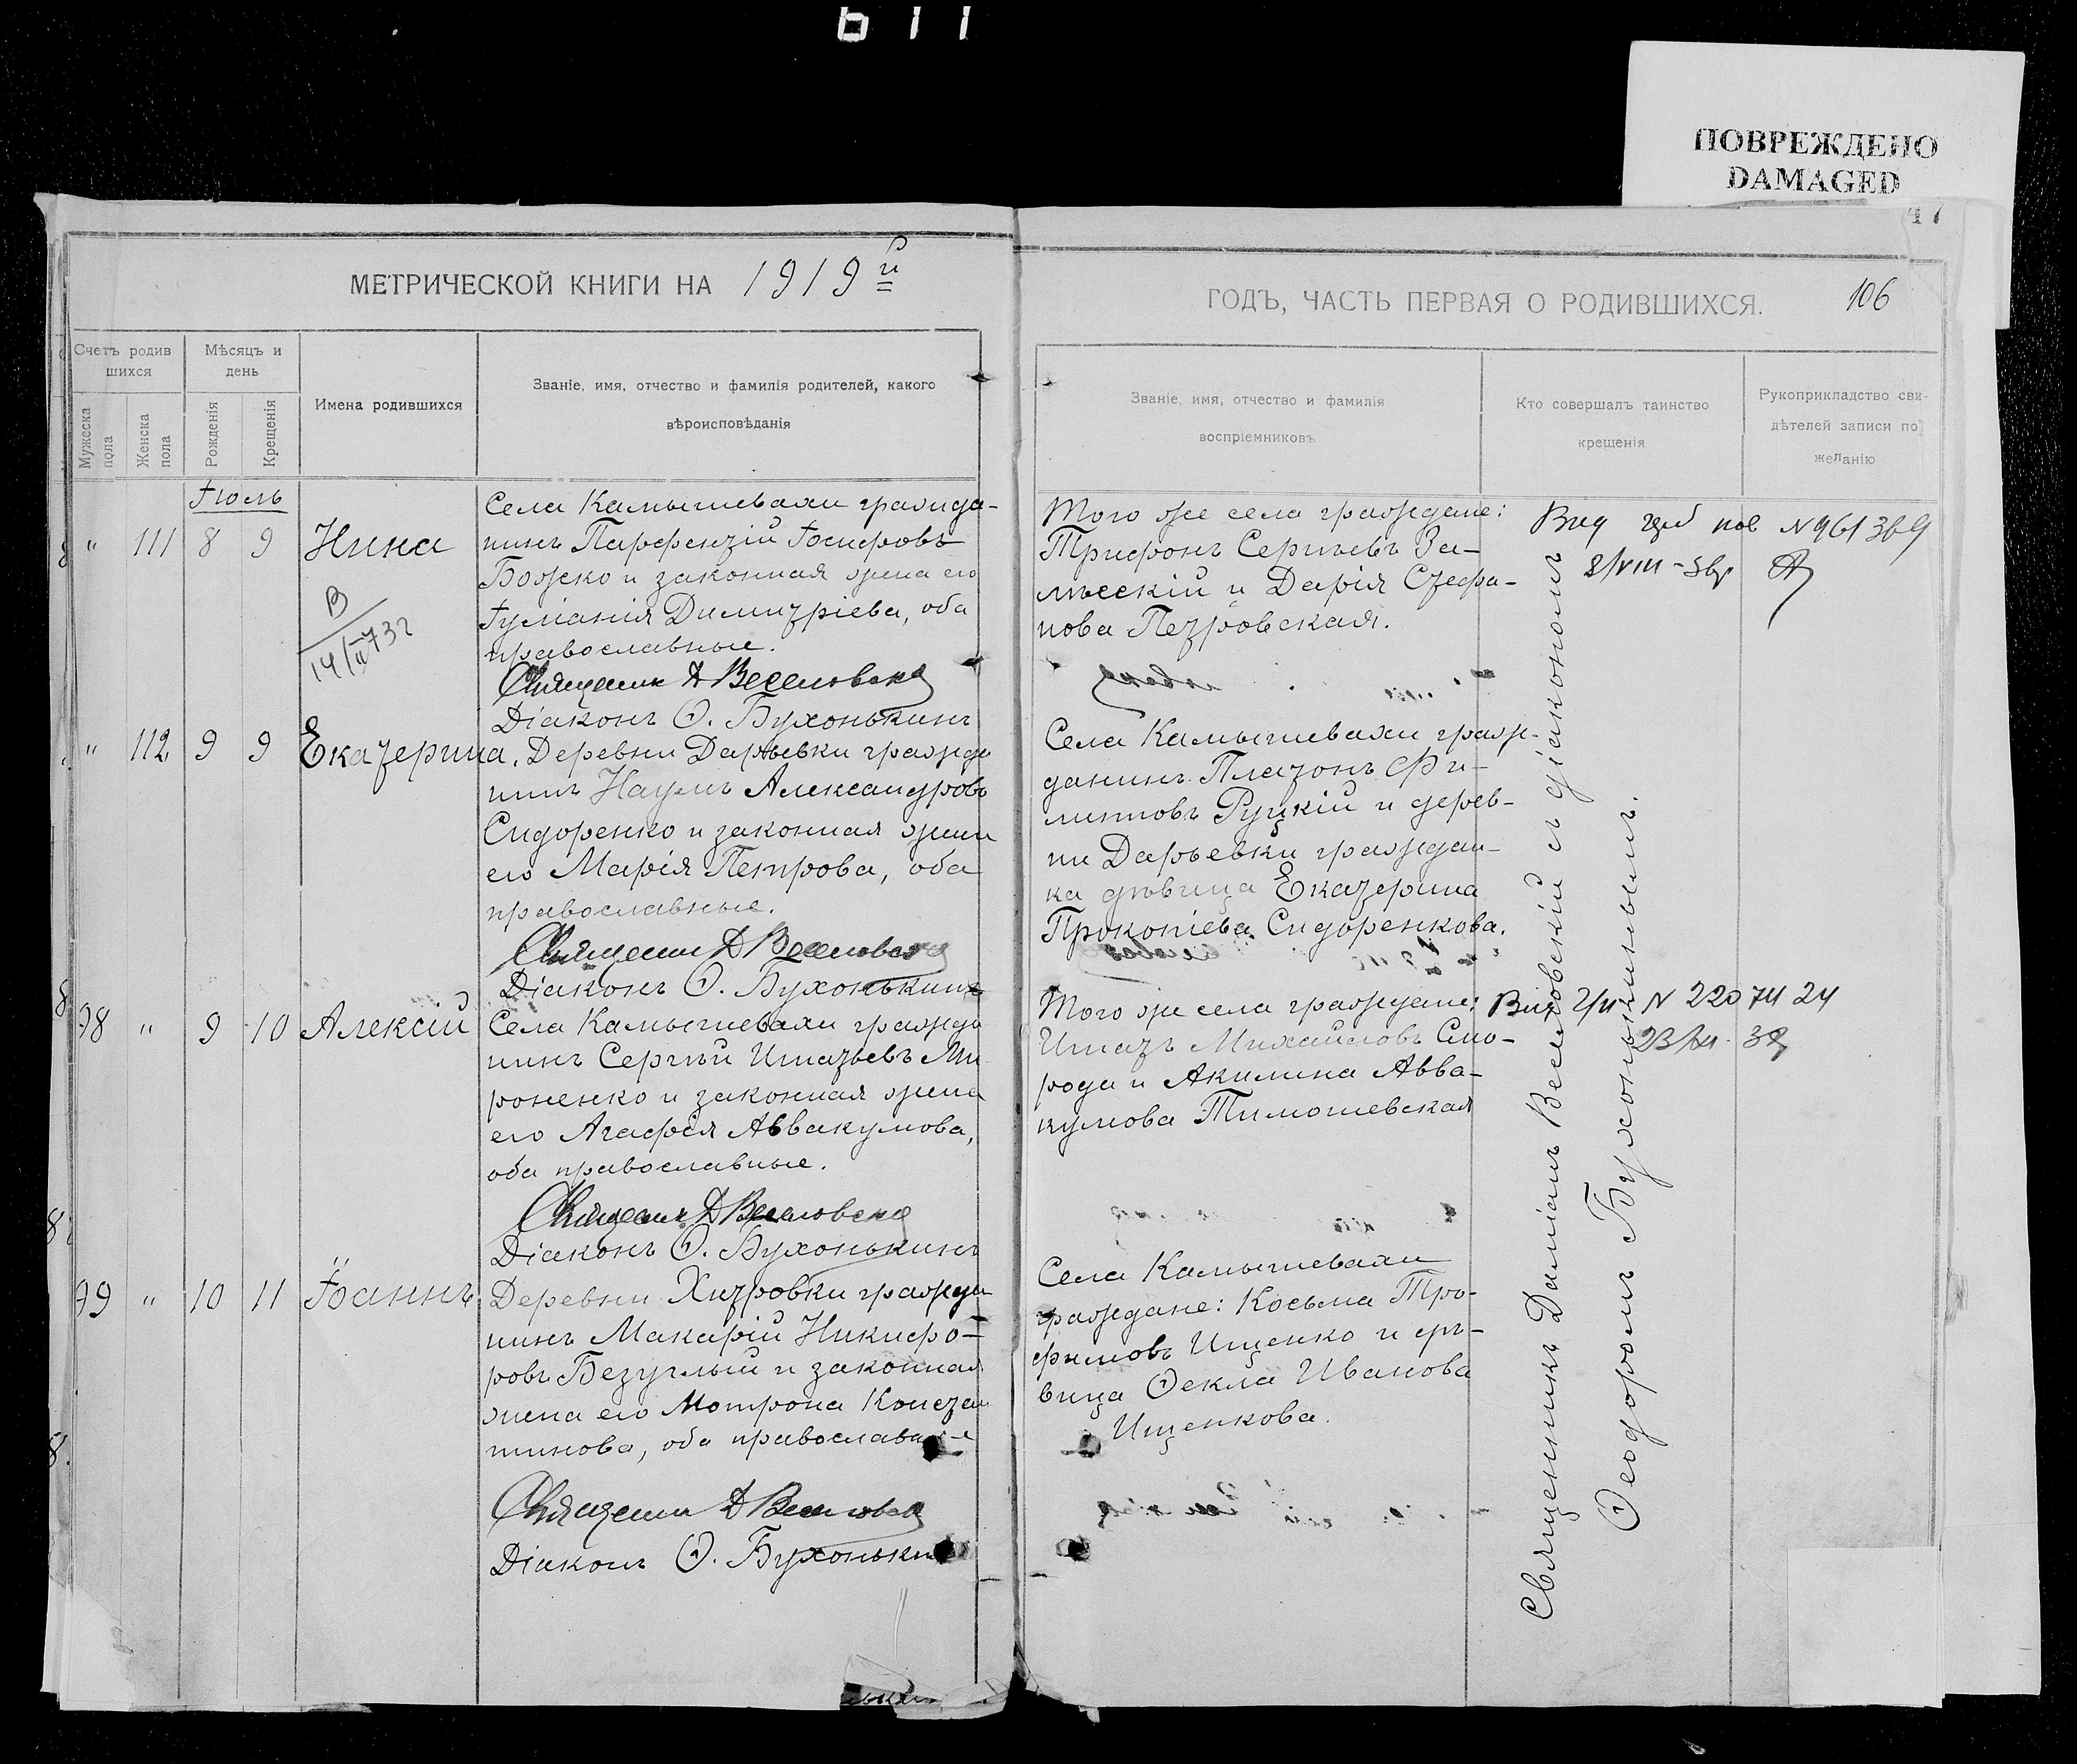 611
ПОВРЕЖДЕНО
DAMAGED
47
МЕТРИЧЕСКОЙ КНИГИ НА 1919 й
ГОДЪ, ЧАСТЬ ПЕРВАЯ О РОДИВШИХСЯ. 106
Счетъ родив
шихся
Мужеска
пола
Женска
пола
Мѣсяцъ и
день
Рожденія
Крещенія
Имена родившихся
Званіе, имя, отчество и фамилія родителей, какого
вѣроисповѣданія
Званіе, имя, отчество и фамилія
воспріемниковъ
Кто совершалъ таинство
крещенія
Рукоприкладство сви-
дѣтелей записи по
желанію
Іюль
" 111 8 9 Нина
В
Села Камышевахи гражда-
нинъ Парфентій Іосифовъ
Божко и законная жена его
Іуліанія Димитріева, оба
православные.
Священник Д Веселовск
Діаконъ Ѳ. Бухонькинъ
Того же села граждане:
Трифонъ Сергѣевъ За-
лѣсскій и Дарія Стефа-
нова Петровская.
№ 961369
" 112 9 9 Екатерина.
Деревни Дарьевки гражда
нинъ Наумъ Александровъ
Сидоренко и законная жена
его Марія Петрова, оба
православные.
Священник Д Веселовск
Діаконъ Ѳ. Бухонькинъ
Села Камышевахи граж-
данинъ Платонъ Фи-
липповъ Руцкій и дерев-
ни Дарьевки граждан-
ка дѣвица Екатерина
Прокопіева Сидоренкова.
98 " 9 10 Алексій
Села Камышевахи гражда
нинъ Сергѣй Игнатьевъ Ми
роненко и законная жена
его Агафія Аввакумова,
оба православные.
Священник Д Веселовск
Діаконъ Ѳ. Бухонькинъ
Того же села граждане:
Игнатъ Михайловъ Смо-
рода и Акилина Авва-
кумова Тимошевская
N 2207424
99 " 10 11 Іоаннъ
Деревни Хитровки гражда
нинъ Макарій Никифо-
ровъ Безуглый и законная
жена его Мотрона Констан
тинова, оба православные
Священник Д Веселовск
Діаконъ Ѳ. Бухонькин
Села Камышевахи
граждане: Косьма Тро-
фимовъ Ищенко и дѣ-
вица Ѳекла Иванова
Ищенкова.
Священникъ Даміанъ Веселовскій съ діакономъ
Ѳеодоромъ Бухонькинымъ.